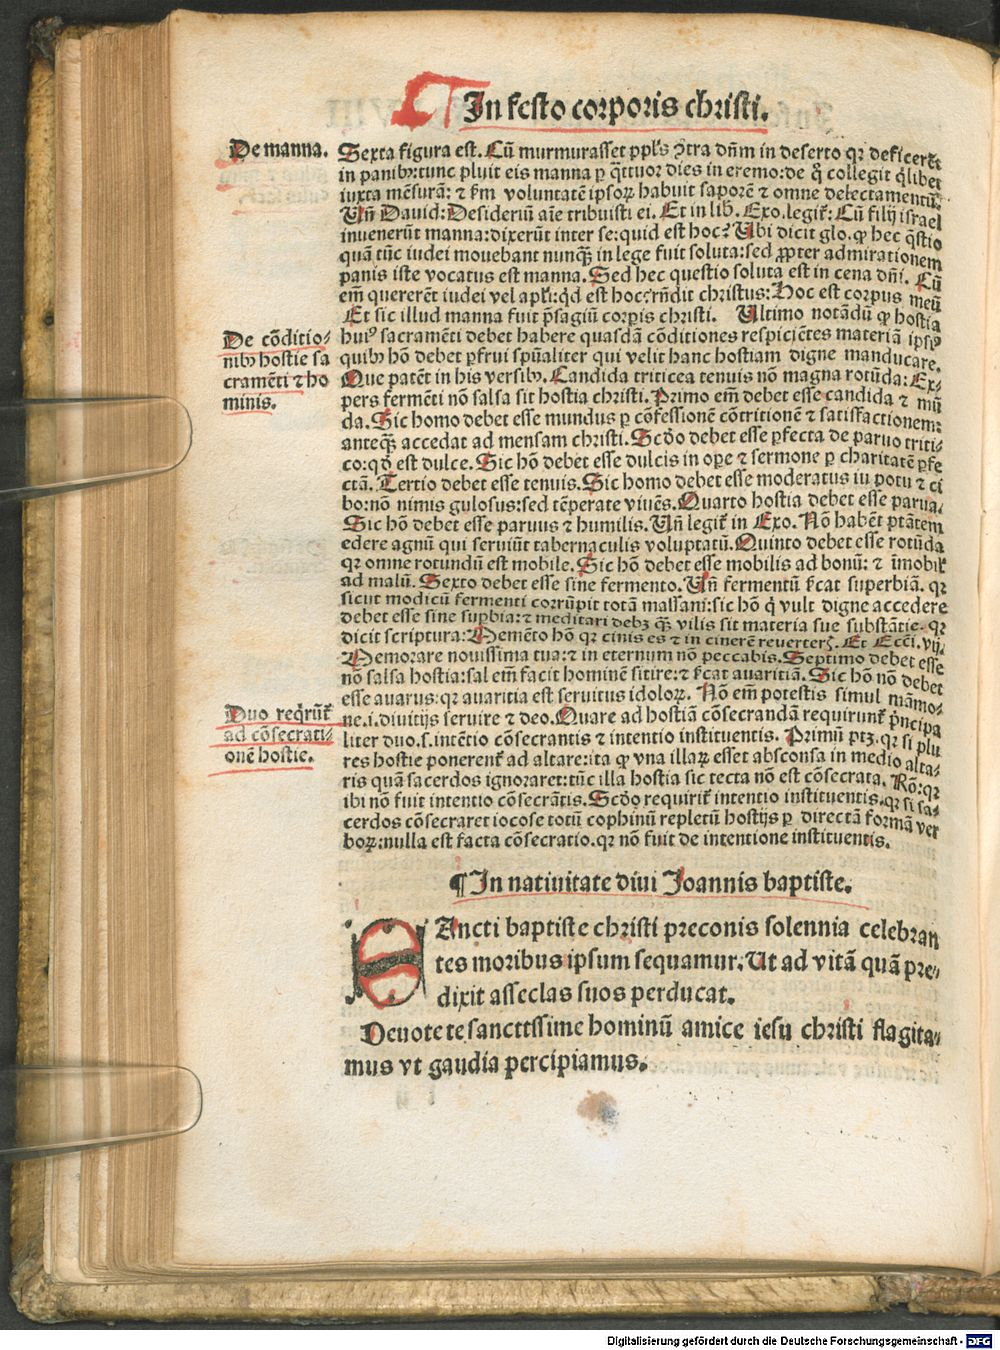 In festo corporis christi.
De manna.
Sexta figura est. Cũ murmurasset ppl's ꝯtra dñm in deserto qꝛ deficerẽt
in panibꝰ: tunc pluit eis manna p q̃ttuoꝛ dies in eremo: de q̃ collegit q̃libet
iuxta mẽsurã: ⁊ fm voluntatẽ ipsoꝝ habuit saporẽ ⁊ omne delectamentũ.
Uñ Dauid: Desideriũ aĩe tribuisti ei. Et in lib. Exo. legit̃: Cũ filij israel
inuenerũt manna: dixerũt inter se: quid est hoc? Ubi dicit glo. ꝙ hec q̃stio
quã tũc iudei mouebant nunqꝫ in lege fuit soluta: sed ꝓpter admirationem
panis iste vocatus est manna. Sed hec questio soluta est in cena dñi. Cũ
em̃ quererẽt iudei vel apl'i: qd̃ est hoc: rñdit christus: Hoc est corpus meũ
Et sic illud manna fuit p̃sagiũ corpis christi. Ultimo notãdũ ꝙ hostia
De cõditio-
nibꝰ hostie sa
cramẽti ⁊ ho
minis.
huiꝰ sacramẽti debet habere quasdã cõditiones respiciẽtes materiã ipsiꝰ
quibꝰ hõ debet pfrui spũaliter qui velit hanc hostiam digne manducare.
Que patẽt in his versibꝰ. Candida triticea tenuis nõ magna rotũda: Ex-
pers fermẽti nõ salsa sit hostia christi. Primo em̃ debet esse candida ⁊ mũ
da. Sic homo debet esse mundus p cõfessionẽ cõtritionẽ ⁊ satisfactionem:
anteqꝫ accedat ad mensam christi. Scd̃o debet esse pfecta de paruo triti-
co: qd̃ est dulce. Sic hõ debet esse dulcis in oꝑe ⁊ sermone p charitatẽ pfe
ctã. Tertio debet esse tenuis. Sic homo debet esse moderatus in potu ⁊ ci
bo: nõ nimis gulosus: sed tẽperate viuẽs. Quarto hostia debet esse parua.
Sic hõ debet esse paruus ⁊ humilis. Uñ legit̃ in Exo. Nõ habẽt ptãtem
edere agnũ qui seruiũt tabernaculis voluptatũ. Quinto debet esse rotũda
qꝛ omne rotundũ est mobile. Sic hõ debet esse mobilis ad bonũ: ⁊ imobil'
ad malũ. Sexto debet esse sine fermento. Uñ fermentũ fcat superbiã. qꝛ
sicut modicũ fermenti corrũpit totã massam: sic hõ q̃ vult digne accedere
debet esse sine supbia: ⁊ meditari debꝫ qꝫ vilis sit materia sue substãtie. qꝛ
dicit scriptura: Memẽto hõ qꝛ cinis es ⁊ in cinerẽ reuerterꝭ. Et Ecci. vij.
Memorare nouissima tua: ⁊ in eternum nõ peccabis. Septimo debet esse
nõ salsa hostia: sal em̃ facit hominẽ sitire: ⁊ fcat auaritiã. Sic hõ nõ debet
esse auarus: qꝛ auaritia est seruitus idoloꝝ. Nõ em̃ potestis simul mãmo-
Duo req̃rũt̃
ad cõsecrati-
onẽ hostie.
ne .i. diuitijs seruire ⁊ deo. Quare ad hostiã cõsecrandã requirunt̃ p̃ncipa
liter duo .s. intẽtio cõsecrantis ⁊ intentio instituentis. Primũ ptꝫ. qꝛ si plu
res hostie ponerent̃ ad altare: ita ꝙ vna illaꝝ esset absconsa in medio alta-
ris quã sacerdos ignoraret: tũc illa hostia sic tecta nõ est cõsecrata. Rõ: qꝛ
ibi nõ fuit intentio cõsecrãtis. Scd̃o requirit̃ intentio instituentis. qꝛ si sa-
cerdos cõsecraret iocose totũ cophinũ repletũ hostijs p directã formã ver
boꝝ: nulla est facta cõsecratio. qꝛ nõ fuit de intentione instituentis.
¶ In natiuitate diui Joannis baptiste.
SAncti baptiste christi preconis solennia celebran
tes moribus ipsum sequamur. Ut ad vitã quã pre-
dixit asseclas suos perducat.
Deuote te sanctissime hominũ amice iesu christi flagita-
mus vt gaudia percipiamus.
Digitalisierung gefördert durch die Deutsche Forschungsgemeinschaft - DFG